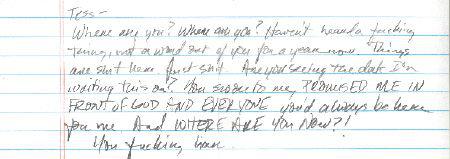 Tess-
Where are you? Where are you? Haven't heard a fucking
thing, not a word out of you for a year now. Things
are shit here. Just shit. Are you seeing the date I'm
writing this on? You swore to me, PROMISED ME IN
FRONT of GOD AND EVERYONE you'd always be here
for me. And WHERE ARE YOU NOW?!
You fucking liar.